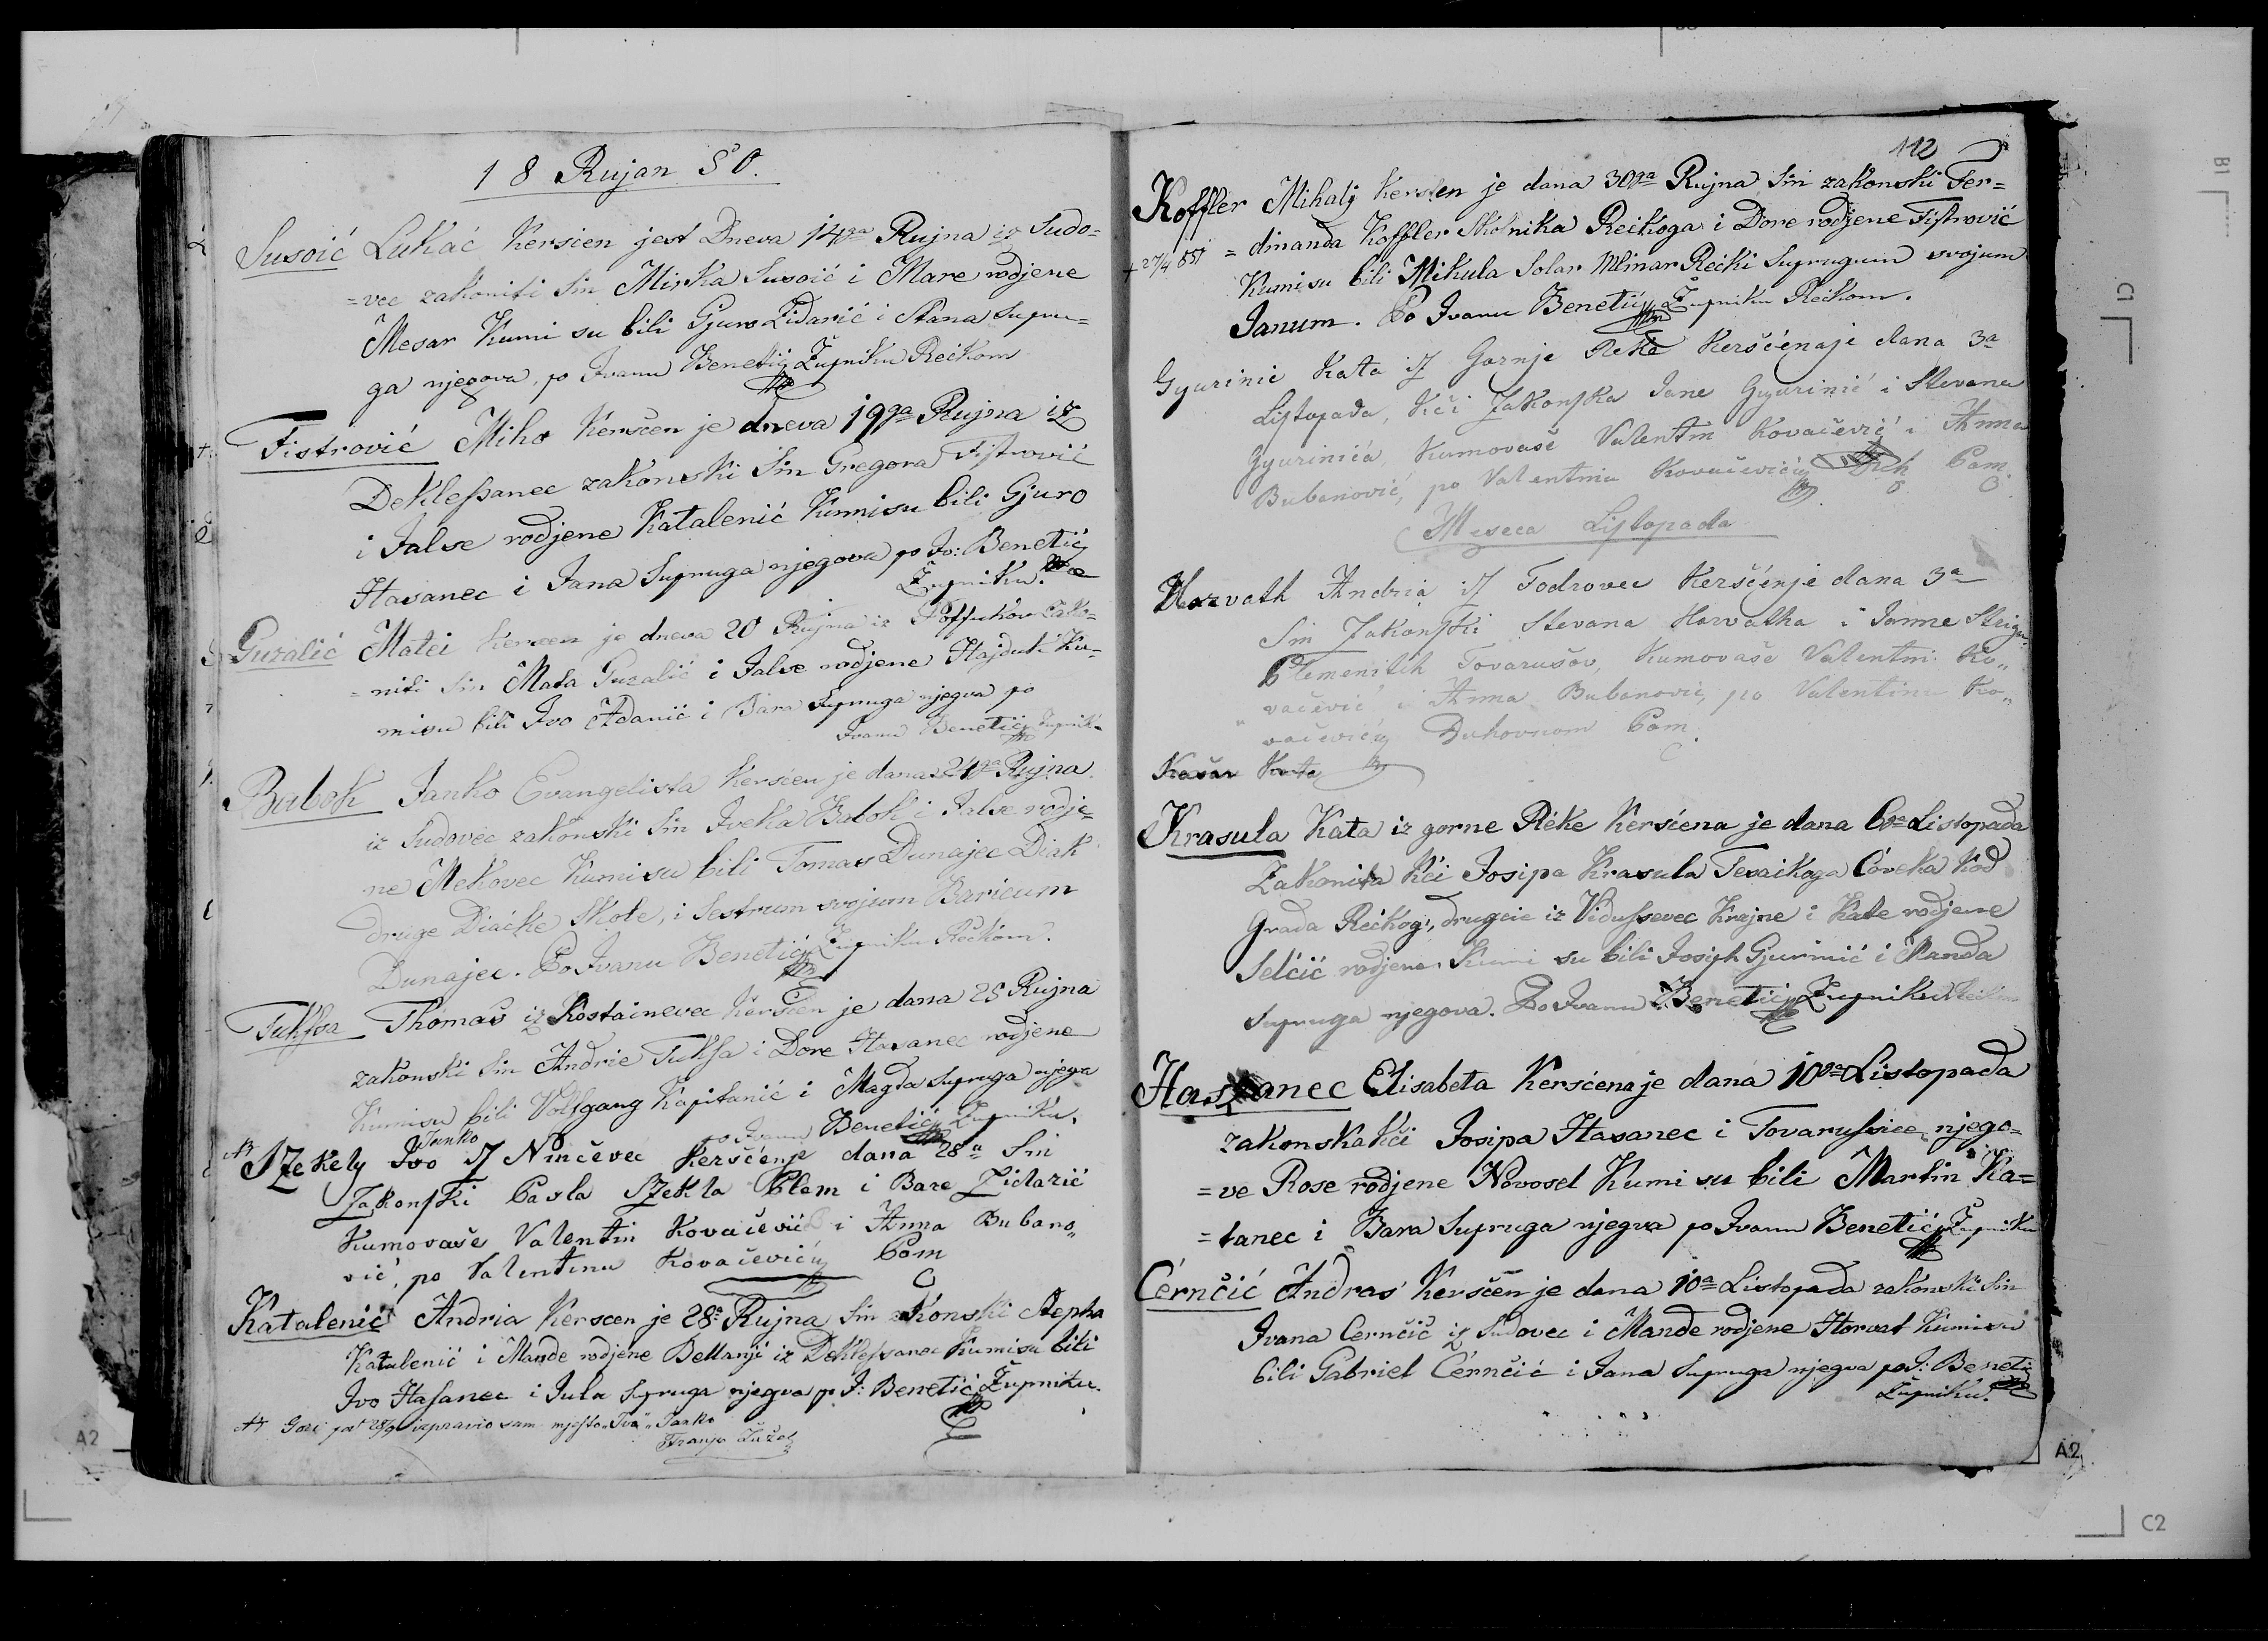 18 Rujan 50.
Susoić Lukać Kersćen jest Dneva 14ga Rujna iz Sudo=
=vec zakoniti Sin Mirka Susoić i Mare rodjene
Mesar Kumi su bili Gjuro Zidarić i Stana Supru=
ga njegova, po Ivanu Benetić Župniku Rećkom
Fistrović Miho Kersčen je dneva 19ga Rujna iz
Deklessanec zakonski Sin Gregora Fistrović
i Jalse rodjene Katalenić Kumi su bili Gjuro
Hasanec i Jana Supruga njegova po Iv: Benetić
Župniku.
Guzalić Matei Kersen je dneva 20 Rujna iz zako=
=niti Sin Mata Guzalić i Jalse rodjene Hajduk Ku=
misu bili Ivo Adanić i Bara Supruga njegva po
Ivanu Benetić Župnik
Babok Janko Evangelista Kersćen je dana 24ga Rujna
iz Sudovec zakonski Sin Iveka Babok i Jalse rodje=
ne Mekovec Kumi su bili Tomas Dunajec Diak
druge Diaćke Skole, i Sestrum svojum Baricum
Dunajec. Po Ivanu Benetić Župniku Rećkom.
Tuksa Thomaš iz Kostainevec Kersćen je dana 25 Rujna
zakonski Sin Andrie Tuksa i Dore Hasanec rodjene
Kumisu bili Volfgang Kapitanić i Magda Supruga njegva
po Ivanu Benetić Župniku.
Janko
Szekely Ivo iz Ninčevec Kerščenje dana 28a Sin
Zakonski Pavla Szekla Plem i Bare Zidarić
Kumovaše Valentin Kovačević i Anna Bubano„
vić, po Valentinu Kovačeviću Pom
Katalenić Andria Kerscen je 28a Rujna Sin zakonski Stepha
Katalenić i Mande rodjene Bellanji iz Deklessanec Kumisu bili
Ivo Hasanec i Jula Supruga njegva po I: Benetić Župniku.
Gori pod 28/9 izpravio sam mjesto „Iva„ Janko
Franjo
112
Koffler Mihalj Kersten je dana 30ga Rujna Sin zakonski Fer=
+ 27/4 851 = dinanda Koffler Skolnika Rećkoga i Dore rodjene Fistrović
Kumisu bili Mikula Solar Mlinar Rećki Suprugum svojum
Janum. Po Ivanu Benetić Župniku Rećkom.
Gyurinić Kata iz Gornje Reke Kerščenaje dana 3a
Listopada, Kći Zakonska Jane Gyurinić i Stevana
Gyurinića, Kumovaše Valentin Kovačević i Anna
Bubanović, po Valentinu Kovačeviću Pom
Meseca Listopada
Horvath Andria iz Todrovec Kerščenje dana 3a
Sin Zakonski Stevana Horvatha i Janne
Plemenitih Tovarušov, Kumovaše Valentin Ko„
„vačević i Anna Bubanović, po Valentinu Ko„
vačeviću Duhovnom Pom.
Kata
Krasula Kata iz gorne Réke Kersćena je dana 6ga Listopada
Zakonita Kći Josipa Krasula Čoveka Kod
Grada Rećkog, drugcie iz Vidussevec Krajne i Kate rodjene
Selčić rodjene. Kumi su bili Josiph Gjurinić i Manda
Supruga njegova. Po Ivanu Benetić Župniku
Hasanec Elisabeta Kersćenaje dana 10ga Listopada
zakonskakći Josipa Hasanec i Tovarussice njego=
=ve Rose rodjene Novosel Kumi su bili Martin Ka=
=tanec i Bara Supruga njegva po Ivanu Benetić Župniku
Cérnčić Andras Kersčen je dana 10a Listopada zakonski Sin
Ivana Cernčić iz Sudovec i Mande rodjene Horvat Kumisu
bili Gabriel Cérnčić i Jana Supruga njegva po I: Beneti
Župniku.